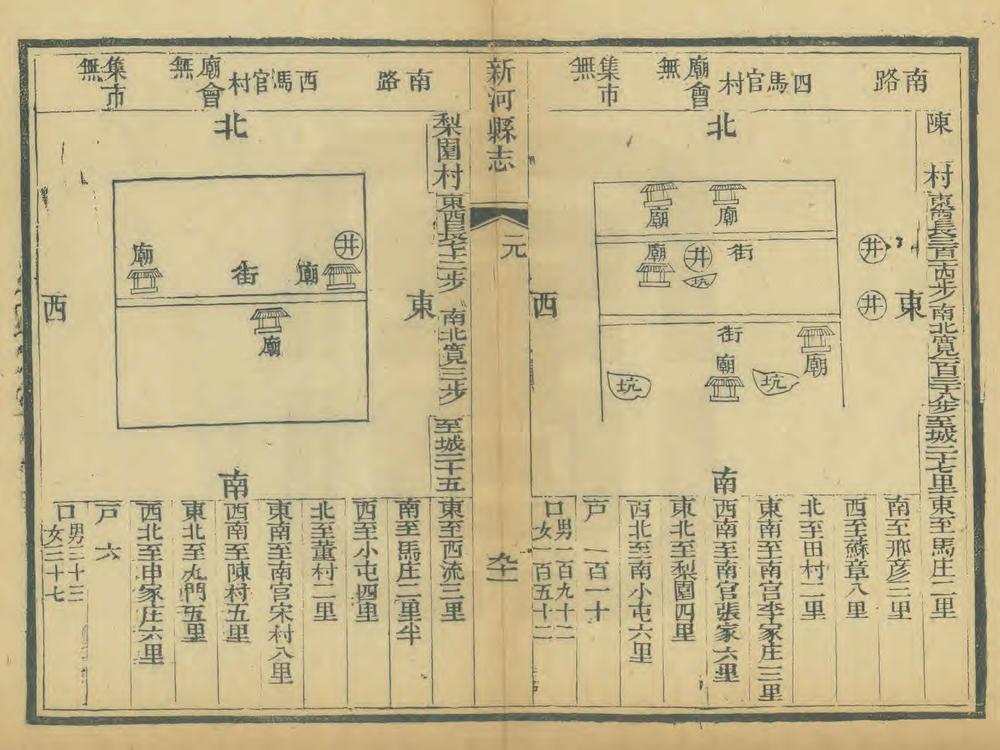 南路
四馬官村
廟會無
集市無
陳村
東西長三百步南北寬一百三十八步至城二十七里
東至馬庄二里
南至邢彦三里
西至蘇章八里
北至田村二里
東南至南宫李家庄三里
西南至南官張家六里
東北至梨園四里
西北至南小屯六里
戸一百一十
口男一百九十二
女一百五十二
北
東
南
西
井
井
廟
廟
街
井
坑
廟
街
廟
廟
坑
坑
新河縣志
元
南路
西馬官村
廟會無
集市無
梨園村
東西長七十二步
南北寬三步
至城二十五
東至西流三里
南至馬庄二里半
西至小屯四里
北至董村二里
東南至南宫宋村八里
西南至陳村五里
東北至九門五里
西北至申家庄六里
戸六
口男三十三
女三十七
北
東
南
西
井
廟
街
廟
廟